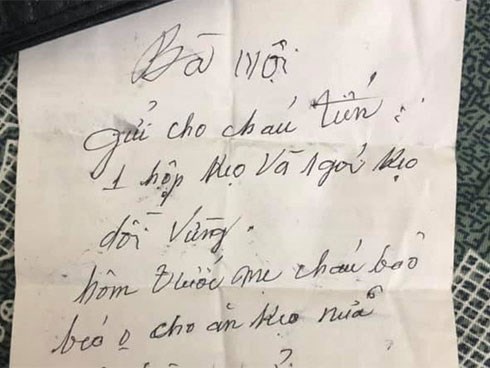 Bà Nội
gửi cho cháu Tiến :
1 hộp kẹo và 1 gói kẹo
dồi vừng.
hôm trước mẹ cháu bảo
béo o cho ăn kẹo nữa